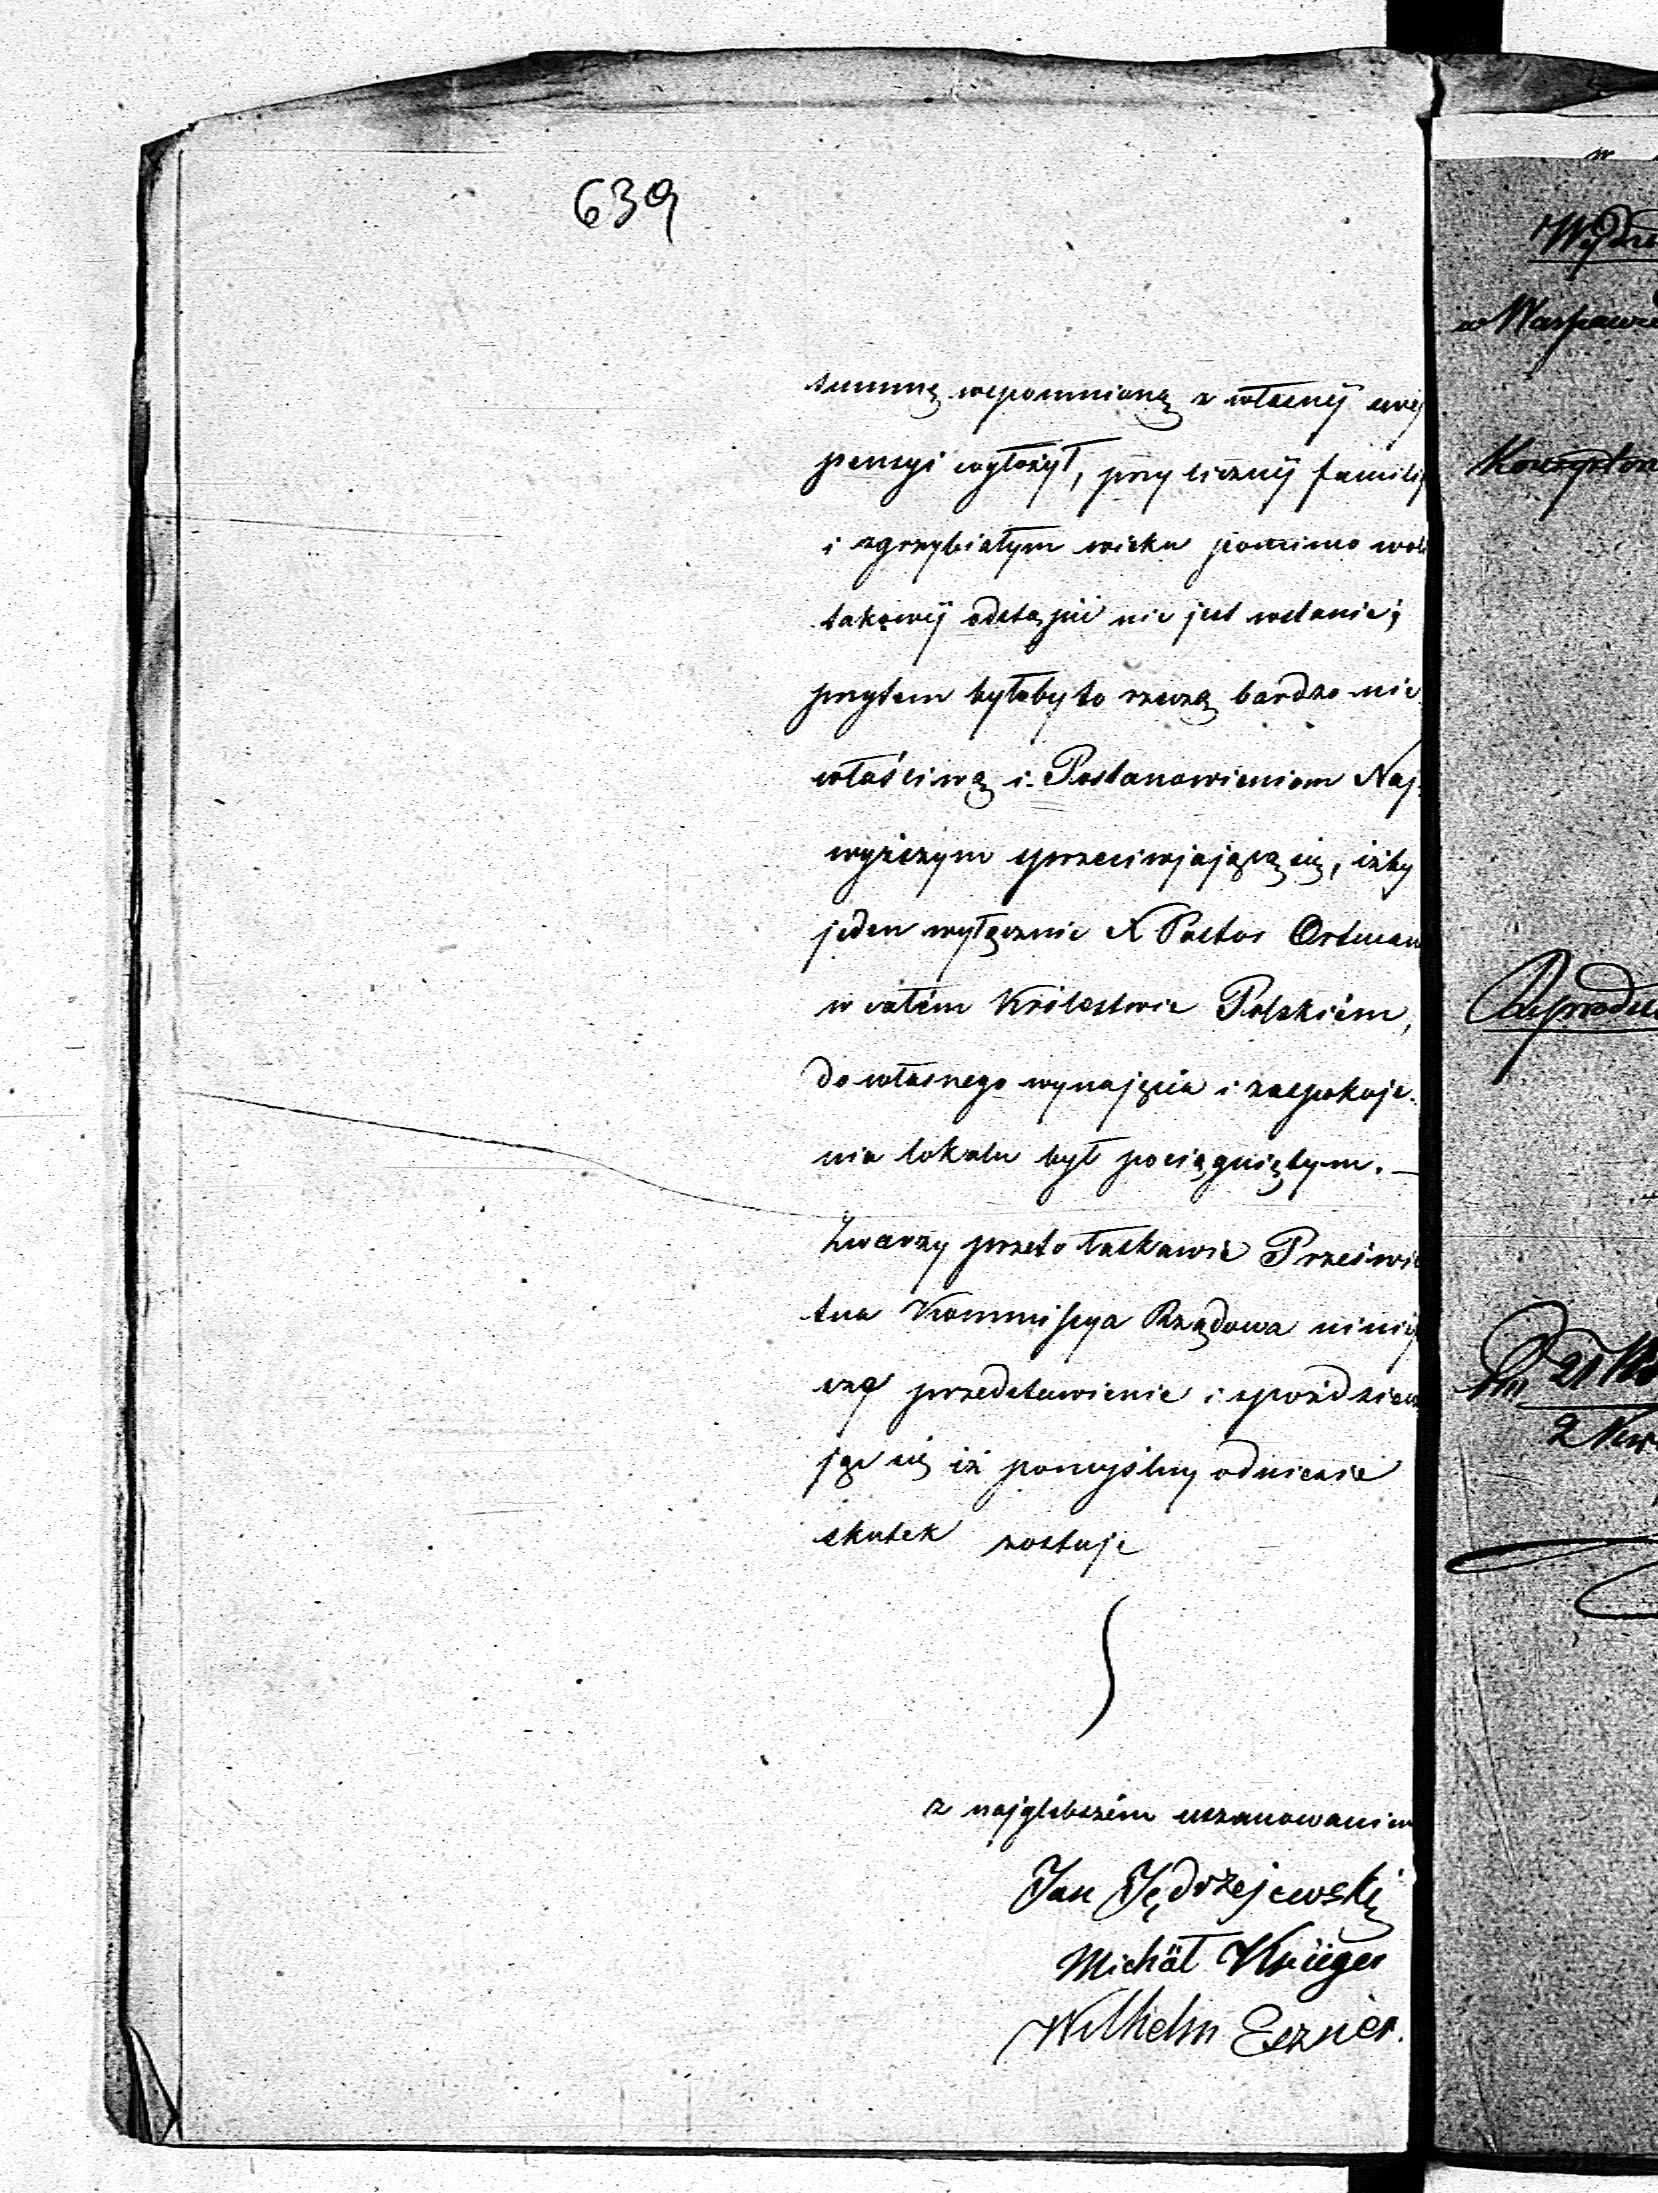 639
summę wspomnioną z własnéj swéj
pensyi wyłożył, przy licznéj familij
i zgrzybiałym wieku pomimo woli
takowéj odstąpić nie jest wstanie;
przytem byłoby to rzeczą bardzo nie
właściwą i Postanowieniom Naj-
wyższym sprzeciwjającą się, iżby
jeden wyłącznie X Pastor Ortman
w całém Królestwie Polskiém,
do własnego wynajęcia i zaspokoje-
nia lokalu był pociągniętym. —
Zwarzy przeto łaskawie Prześwie
tna Kommissya Rządowa niniéj
sze przedstawienie i spodziewa
jąc się iż pomyślny odniesie
skutek zostaje
z najglebszém uszanowaniem
Jan Jędrzejewski
Michał Krüger
Wilhelm Eszner.
w Warszawie
2 Kw